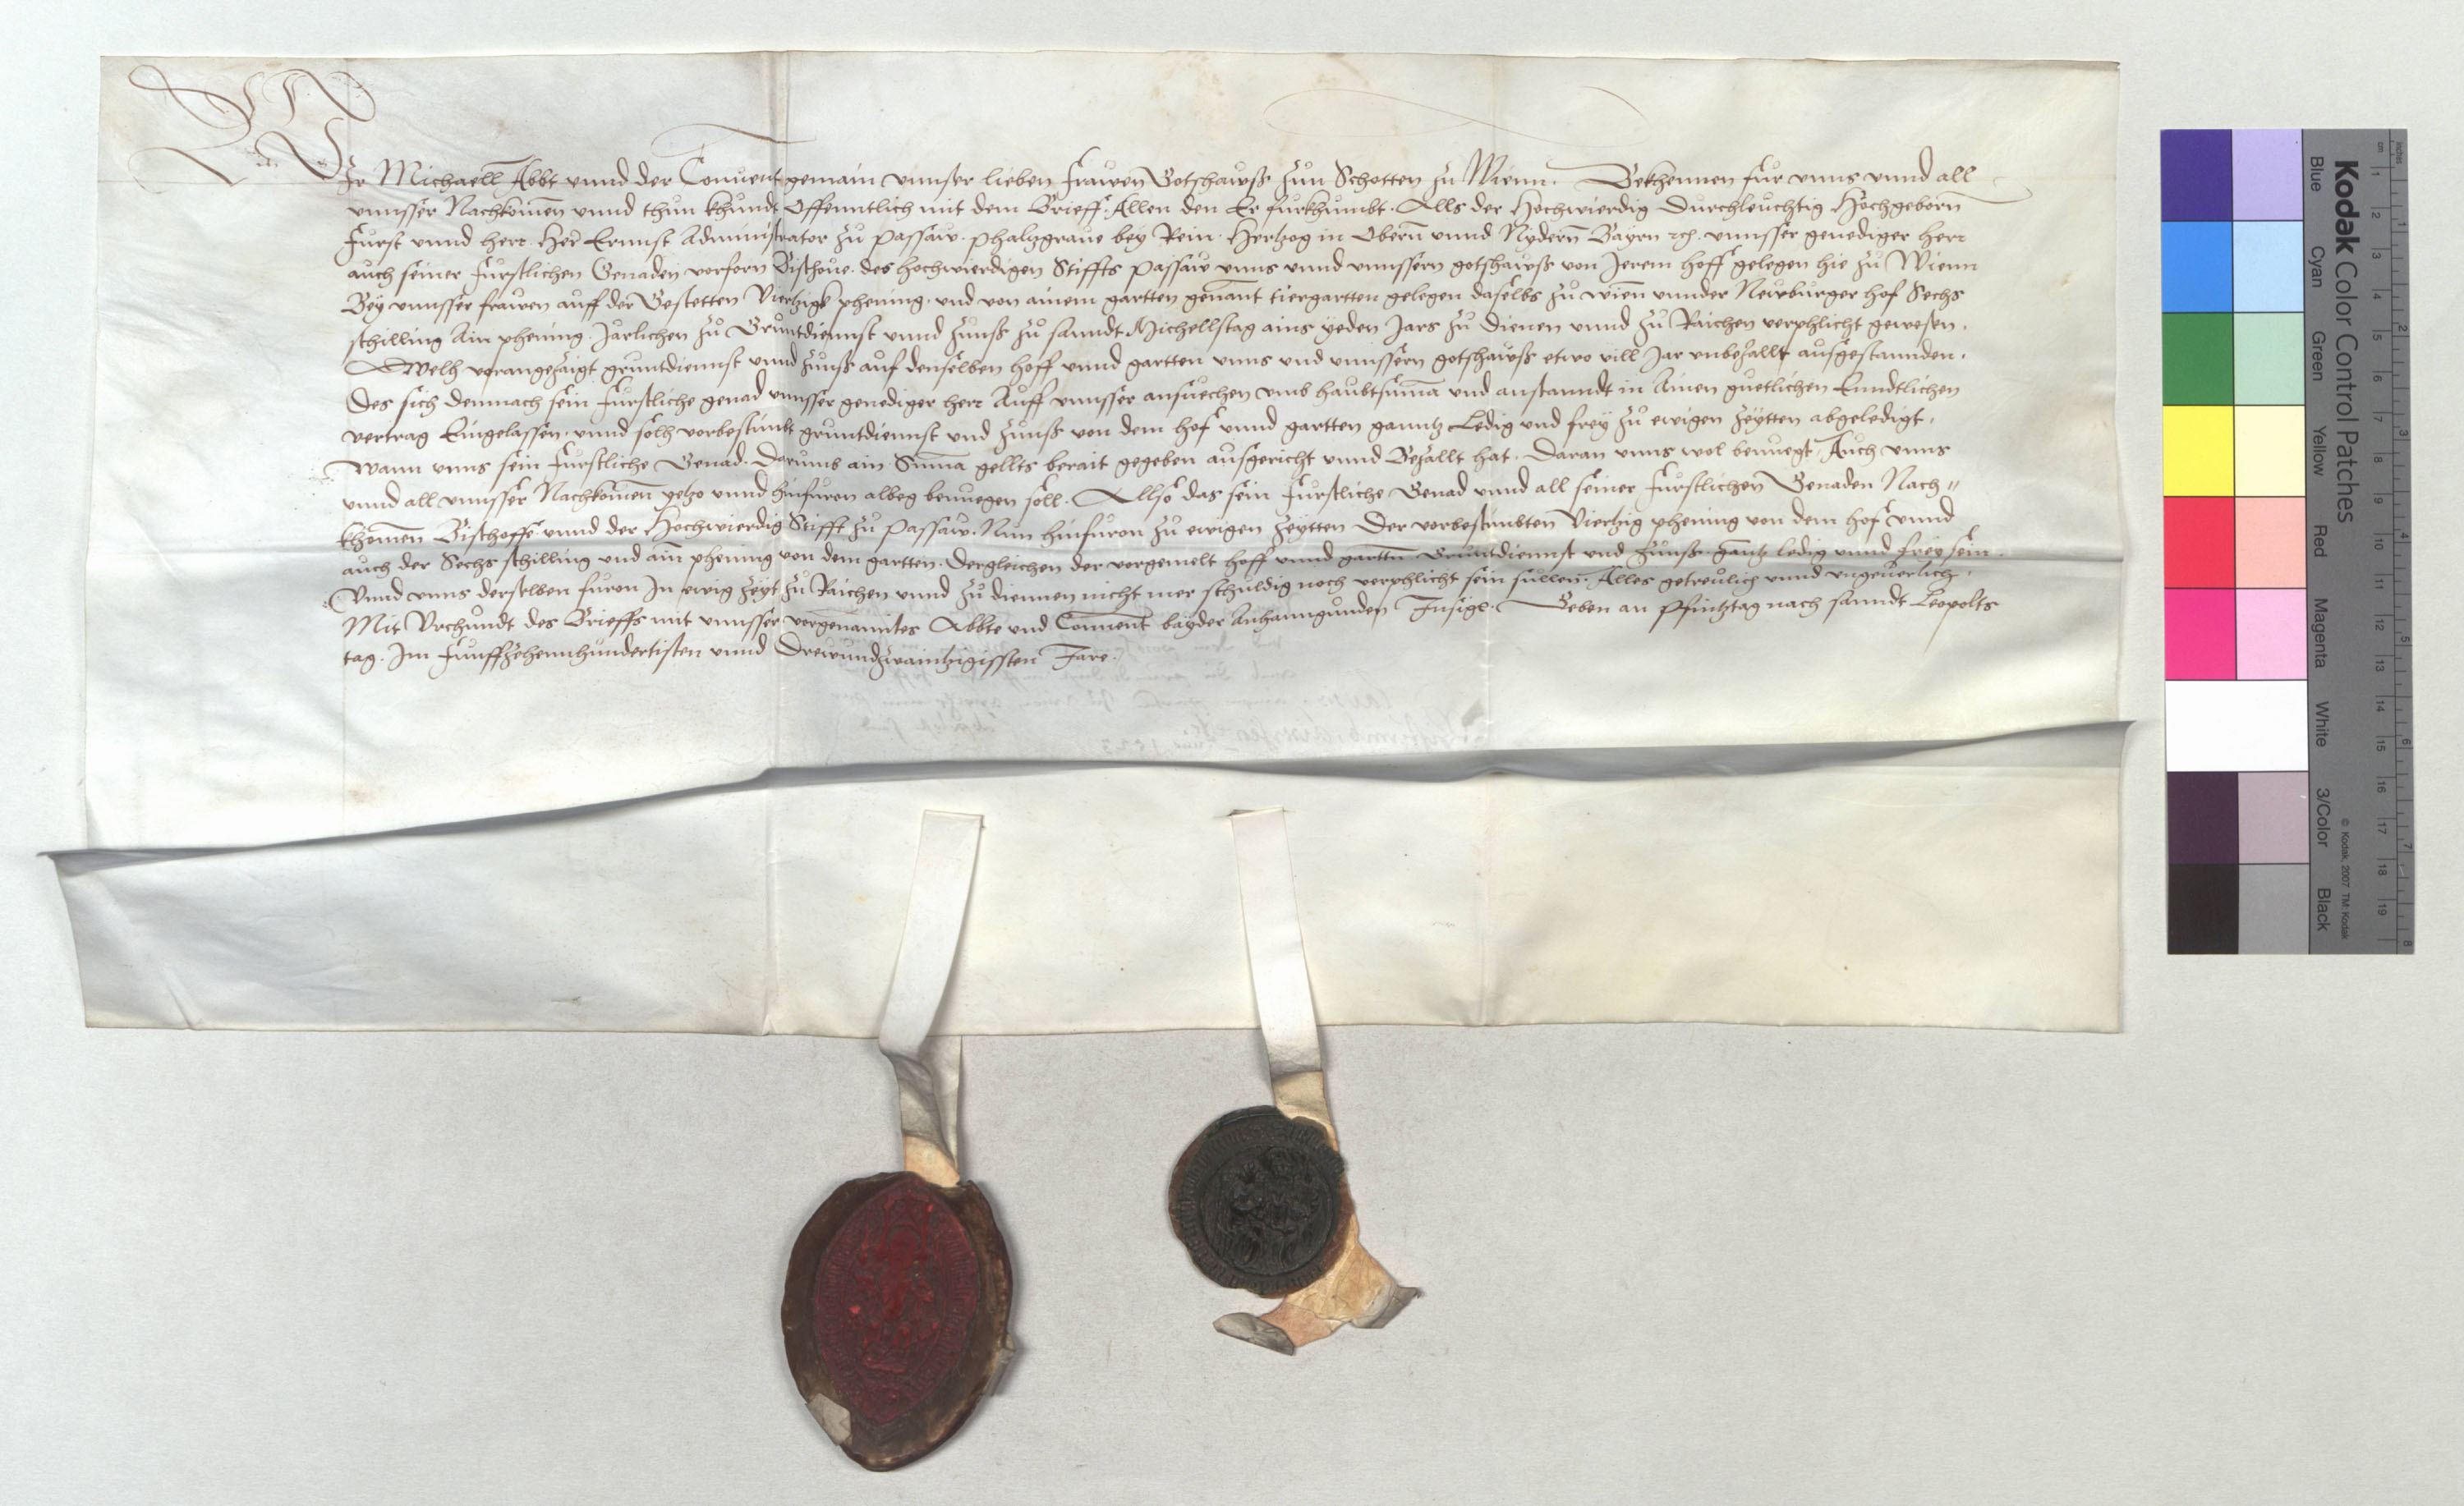 Wir Michaell Abbt vnnd der Conuent gemain vnnser lieben frawen Gotshawss zun Schotten zu Wienn. Bekhennen fur vnns vnnd all
vnnsser Nachkomen vnnd thun khundt Offenntlich mit dem Brieff. Allen den Er furkhumbt. Alls der Hochwierdig Durchleuchtig Hochgeborn
Furst vnnd herr. Her Ernnst Administrator zu Passaw. Phaltzgraue bey Rein. Hertzog in Obern vnnd Nydern Bayrn rc. vnnsser genediger herr
auch seiner furstlichen Genaden vorforn Bischoue. des hochwierdigen Stiffts Passaw vnns vnnd vnnssern gotshawss von Jerem hoff gelegen hie zu Wienn
Bey vnnsser frawen auff der Gestetten Viertzigk phening. vnd von ainem gartten genant tiergartten gelegen daselbs zu wien vnnder Newburger hof Sechs
schilling Ain phening. Jarlichen zu Gruntdiennst vnnd zunss zu sanndt Michellstag ains yeden Jars zu dienen vnnd zu Raichen verphlicht gewesen.
Welh vorangezaigt gruntdiennst vnnd zunss auf denselben hoff vnnd gartten vnns vnd vnnssern gotshawss etwo vill Jar vnbezallt ausgestannden.
Des sich demnach sein furstliche genad vnnsser genediger herr Auff vnnsser ansuechen vmb haubtsuma vnd anstanndt in Ainen guetlichen Enndtlichen
vertrag Eingelassen. vnnd solh vorbestimbt gruntdiennst vnd zunss von dem hof vnnd gartten ganntz Ledig vnd frey zu ewigen zeytten abgeledigt.
Wann vnns sein furstliche Genad. Darumb ain Suma gellts berait gegeben ausgericht vnnd Bezallt hat. Daran vnns wol benuegt. Auch vnns
vnnd all vnnsser Nachkomen yetzo vnnd hinfuron albeg benuegen soll. Allso das sein furstliche Genad vnnd all seiner furstlichen Genaden Nach=
khomen Bischoffe vnnd der Hochwierdig Stifft zu Passaw. Nun hinfuron zu ewigen zeytten Der vorbestimbten Viertzig phening von dem hof vnnd
auch der Sechs schilling vnd ain phening von dem gartten. Dergleichen der vorgemelt hoff vnnd gartten Gruntdiennst vnd zunss. gantz ledig vnnd frey sein.
Vnnd vnns derselben furon In ewig zeyt zu Raichen vnnd zu diennen nicht mer schuldig noch verphlicht sein sullen. Alles getreulich vnnd vngeuerlich.
Mit Vrchundt des Brieffs mit vnnsser vorgenanntes Abbte vnd Conuent bayder Anhanngunden Insigl. Geben an Phintztag nach sanndt Leopolts
tag. Im Funffzehennhundertisten vnnd Drewundzwaintzigissten Jare.
Kodak Color Control Patches
Blue Cyan Green Yellow Red Magenta White 3/Color Black
© Kodak, 2007 TM: Kodak
cm 1 2 3 4 5 6 7 8 9 10 11 12 13 14 15 16 17 18 19
inches 1 2 3 4 5 6 7 8